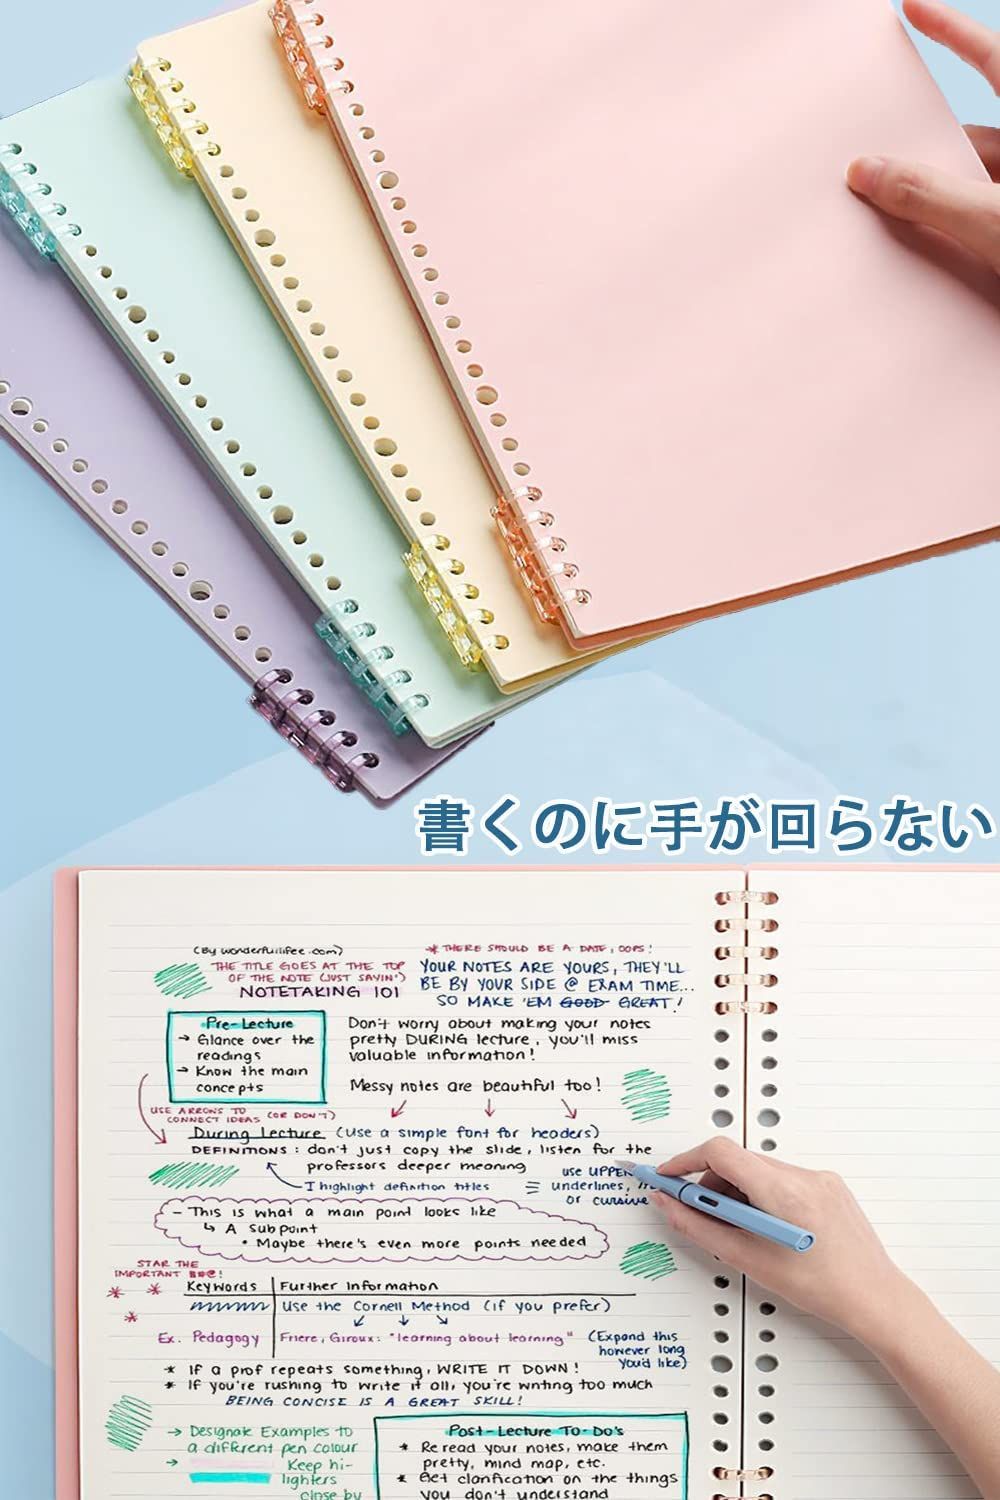 書くのに手が回らない
(By wonderfullifee.com)
* THERE SHOULD BE A DATE, OOPS!
THE TITLE GOES AT THE TOP
OF THE NOTE (JUST SAYIN')
NOTETAKING 101
YOUR NOTES ARE YOURS, THEY'LL
BE BY YOUR SIDE @ EXAM TIME...
SO MAKE 'EM GOOD GREAT!
Pre-Lecture
→ Glance over the
readings
→ Know the main
concepts
Don't worry about making your notes
pretty DURING lecture, you'll miss
valuable information!
Messy notes are beautiful too!
USE ARROWS TO
CONNECT IDEAS (OR DON'T)
During Lecture (Use a simple font for headers)
DEFINITIONS: don't just copy the slide, listen for the
professors deeper meaning
I highlight definition titles
use
underlines,
or cursive
- This is what a main point looks like
↳ A Subpoint
• Maybe there's even more points needed
STAR THE
IMPORTANT
Keywords Further Information
Use the Cornell Method (if you prefer)
Ex. Pedagogy Friere, Giroux: "learning about learning" (Expand this
however long
you'd like)
* If a prof repeats something, WRITE IT DOWN!
* If you're rushing to write it all, you're writing too much
BEING CONCISE IS A GREAT SKILL!
→ Designate Examples to
a different pen colour
→ Keep hi-
lighters
close by
Post-Lecture To-Do's
* Re read your notes, make them
pretty, mind map, etc.
* Get clarification on the things
you don't understand